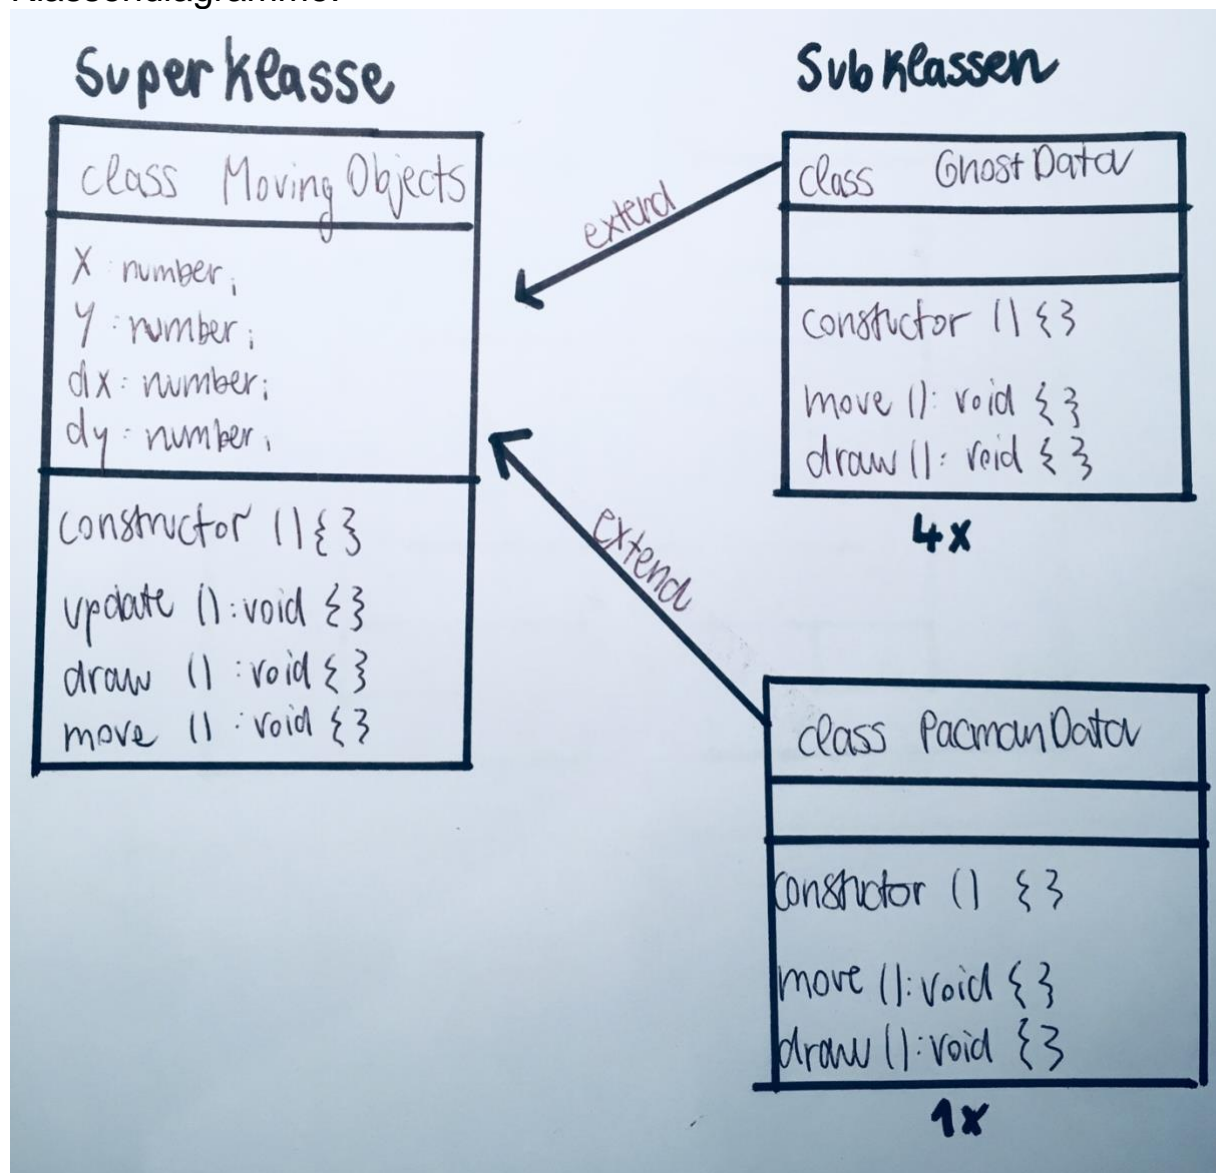 Klassendiagramme:
Superklasse
class MovingObjects
x : number;
y : number;
dx : number;
dy : number;
constructor () { }
update () : void { }
draw () : void { }
move () : void { }
Subklassen
extend
class GhostData
constuctor () { }
move () : void { }
draw () : void { }
4x
extend
class PacmanData
constuctor () { }
move () : void { }
draw () : void { }
1x